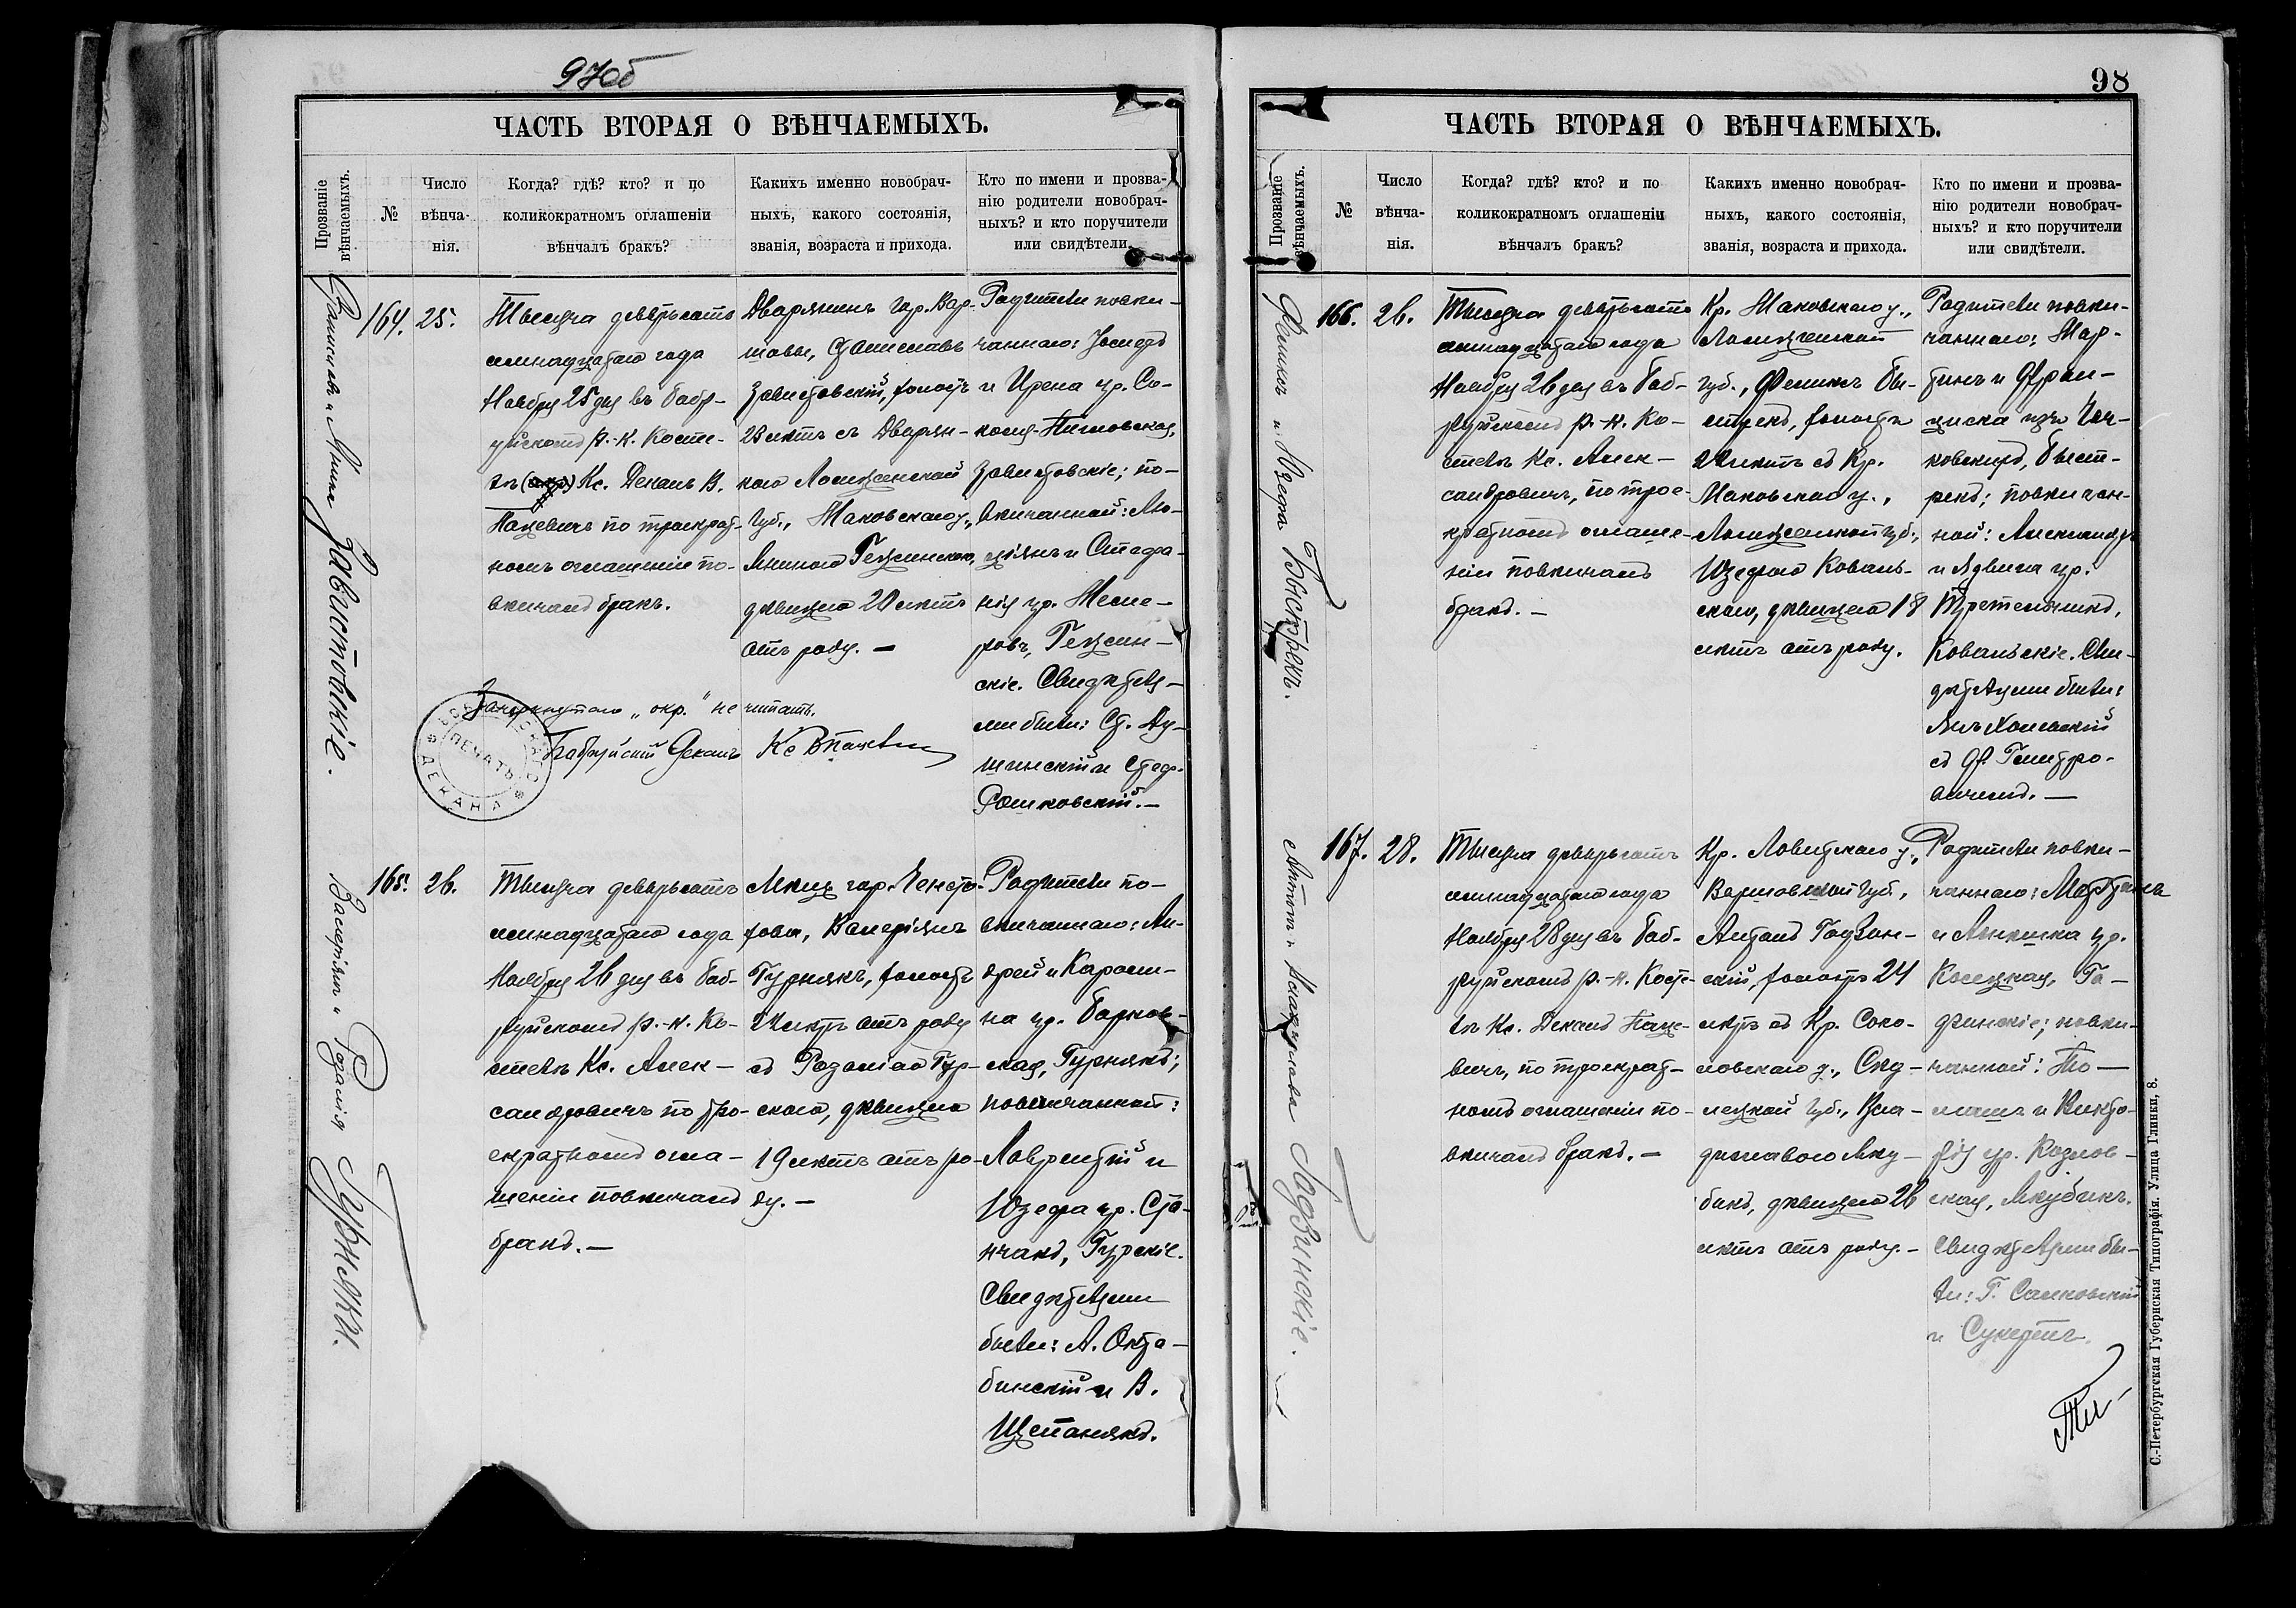 97об
ЧАСТЬ ВТОРАЯ О ВѢНЧАЕМЫХЪ.
Прозваніе вѣнчаемыхъ.
№
Число вѣнча-нія.
Когда? гдѣ? кто? и по коликократномъ оглашеніи вѣнчалъ бракъ?
Какихъ именно новобрач-ныхъ, какого состоянія, званія, возраста и прихода.
Кто по имени и прозва-нію родители новобрач-ныхъ? и кто поручители или свидѣтели.
Станиславъ и Янина Завистовскіе.
164.
25.
Тысяча девятьсотъ
семнадцатаго года
Ноября 25 дня въ Бобр-
уйскомъ р.-к. Косте-
лѣ (окр.) Кс. Деканъ В.
Пацевичъ по троекрат-
номъ оглашеніи по-
вѣнчалъ бракъ.
Дворянинъ гор. Вар-
шавы, Станиславъ
Завистовскій, холостъ
23 лѣтъ съ Дворян-
кою Ломжинской
губ., Маковскаго у.,
Яниною Гецминскою,
дѣвицею 20 лѣтъ
отъ роду. —
Родители повѣн-
чаннаго: Іосифъ
и Ирена ур. Со-
Завистовскіе; по-
вѣнчанной: Лю-
ціянъ и Стефа-
нія ур.
скіе. Свидѣтеля-
ми были: Ст.
и Стеф.
Рошковскій. —
Зачеркнутаго „окр." не читать.
Бобруйскій Деканъ Кс ВПацевичъ
ПЕЧАТЬ
ДЕКАНА
Валеріянъ и Розалія Гурняки.
165.
26.
Тысяча девятьсотъ
семнадцатаго года
Ноября 26 дня въ Боб-
руйскомъ р.-к. Ко-
стелѣ Кс. Алек-
сандровичъ по тро-
екратномъ огла-
шеніи повѣнчалъ
бракъ. —
Мѣщ. гор. Ченсто-
хова, Валеріянъ
Гурнякъ, холостъ
24 лѣтъ отъ роду
съ Розаліею Гур-
скою, дѣвицею
19 лѣтъ отъ ро-
ду. —
Родители по-
вѣнчаннаго: Ан-
дрей и Кароли-
на ур. Борков-
ская, Гурнякъ;
повѣнчанной:
Лаврентій и
Юзефа ур. Ста-
нчакъ, Гурскіе.
Свидѣтелями
были: А. Окта-
бинскій и В.
Щепанякъ.
98
ЧАСТЬ ВТОРАЯ О ВѢНЧАЕМЫХЪ.
Прозваніе вѣнчаемыхъ.
№
Число вѣнча-нія.
Когда? гдѣ? кто? и по коликократномъ оглашеніи вѣнчалъ бракъ?
Какихъ именно новобрач-ныхъ, какого состоянія, званія, возраста и прихода.
Кто по имени и прозва-нію родители новобрач-ныхъ? и кто поручители или свидѣтели.
Феликсъ и Юзефа Быстрекъ.
166.
26.
Тысяча девятьсотъ
семнадцатаго года
Ноября 26 дня въ Боб-
руйскомъ р.-к. Ко-
стелѣ Кс. Алек-
сандровичъ, по трое-
кратномъ оглаше-
ніи повѣнчалъ
бракъ. —
Кр. Маковскаго у.,
Ломжинской
губ., Феликсъ Бы-
стрекъ, холостъ
22 лѣтъ съ Кр.
Маковскаго у.,
Ломжинской губ.,
Юзефою Коваль-
скою, дѣвицею 18
лѣтъ отъ роду.
Родители повѣн-
чаннаго: Мар-
тинъ и Фран-
циска изъ
ковскихъ, Быст-
рекъ; повѣнчан-
ной: Александръ
и Ядвига ур.
Ковальскіе. Сви-
дѣтелями были:
Янъ
съ Ф. Гмитро-
вичемъ. —
Антонъ и Владислава Годзинскіе.
167.
28.
Тысяча девятьсотъ
семнадцатаго года
Ноября 28 дня въ Боб-
руйскомъ р.-к. Косте-
лѣ Кс. Деканъ Паце-
вичъ, по троекрат-
номъ оглашеніи по-
вѣнчалъ бракъ. —
Кр. Ловичскаго у.,
Варшавской губ.,
Антонъ Годзин-
скій, холостъ 24
лѣтъ съ Кр. Соко-
ловскаго у., Сѣд-
лецкой губ., Вла-
диславою Яку-
бикъ, дѣвицею 26
лѣтъ отъ роду. —
Родители повѣн-
чаннаго:
и ур.
Косецкая, Го-
дзинскіе; повѣн-
чанной: То-
машъ и Викто-
рія ур. Козлов-
ская, Якубикъ.
Свидѣтелями бы-
ли: Г.
и
С.-Петербургская Губернская Типографія. Улица Глинки, 8.